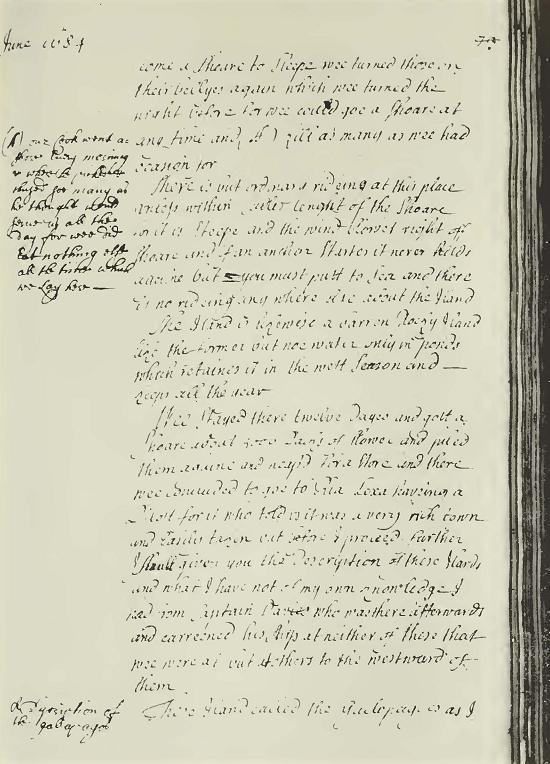 June 1684
come a shoare to sleepe wee turned those on
their bellyes again which wee turned the
night before for wee could goe a shoare at
any time and (A) kill as many as wee had
ocasion for
(A) our Cook went a
shore Every morning
&
for many as
he thought would
serve us all that
day for wee did
Eat nothing else
all the time which
we Lay here —
There is but ordinary rideing at this place
unless within lenght of the shoare
for it is steepe and the wind blowes right off
shoare and if an anchor starts it never holds
againe but you must putt to sea and there
is no rideing any where else about the Iland
The Iland is likewise a barren Rocky Iland
like the former but noe water only in ponds
which retaines it in the wett season and —
keeps all the year
Wee Stayed there twelve Dayes and gott a
shoare about Packs of flower and piled
them againe and for a store and there
wee concluded to goe to Ria Lexa haveing a
Pilott for it who told us it was a very rich town
and Easily taken but before I proceed further
I shall give you the Description of these Ilands
and what I have not of my own knowledge I
had from Captain Davis who was there afterwards
and carreened his ship at neither of these that
wee were at but at others to the westward of
them
a Discription of
the galapagos
These Ilands called the as I